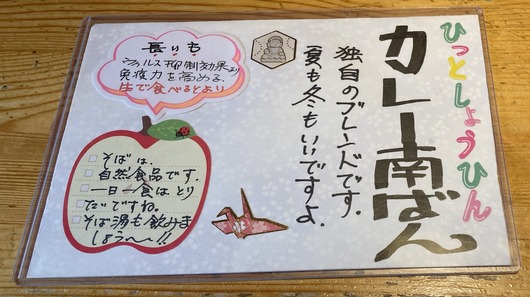 ひっとしょうひん
カレー南ばん
独自のブレンドです.
夏も冬もいいですよ.
長いも
ウィルス抑制効果より
免疫力を高める.
生で食べるとより
そばは、
自然食品です.
一日一食は、とり
たいですね.
そば湯も飲みま
しょう〜!!